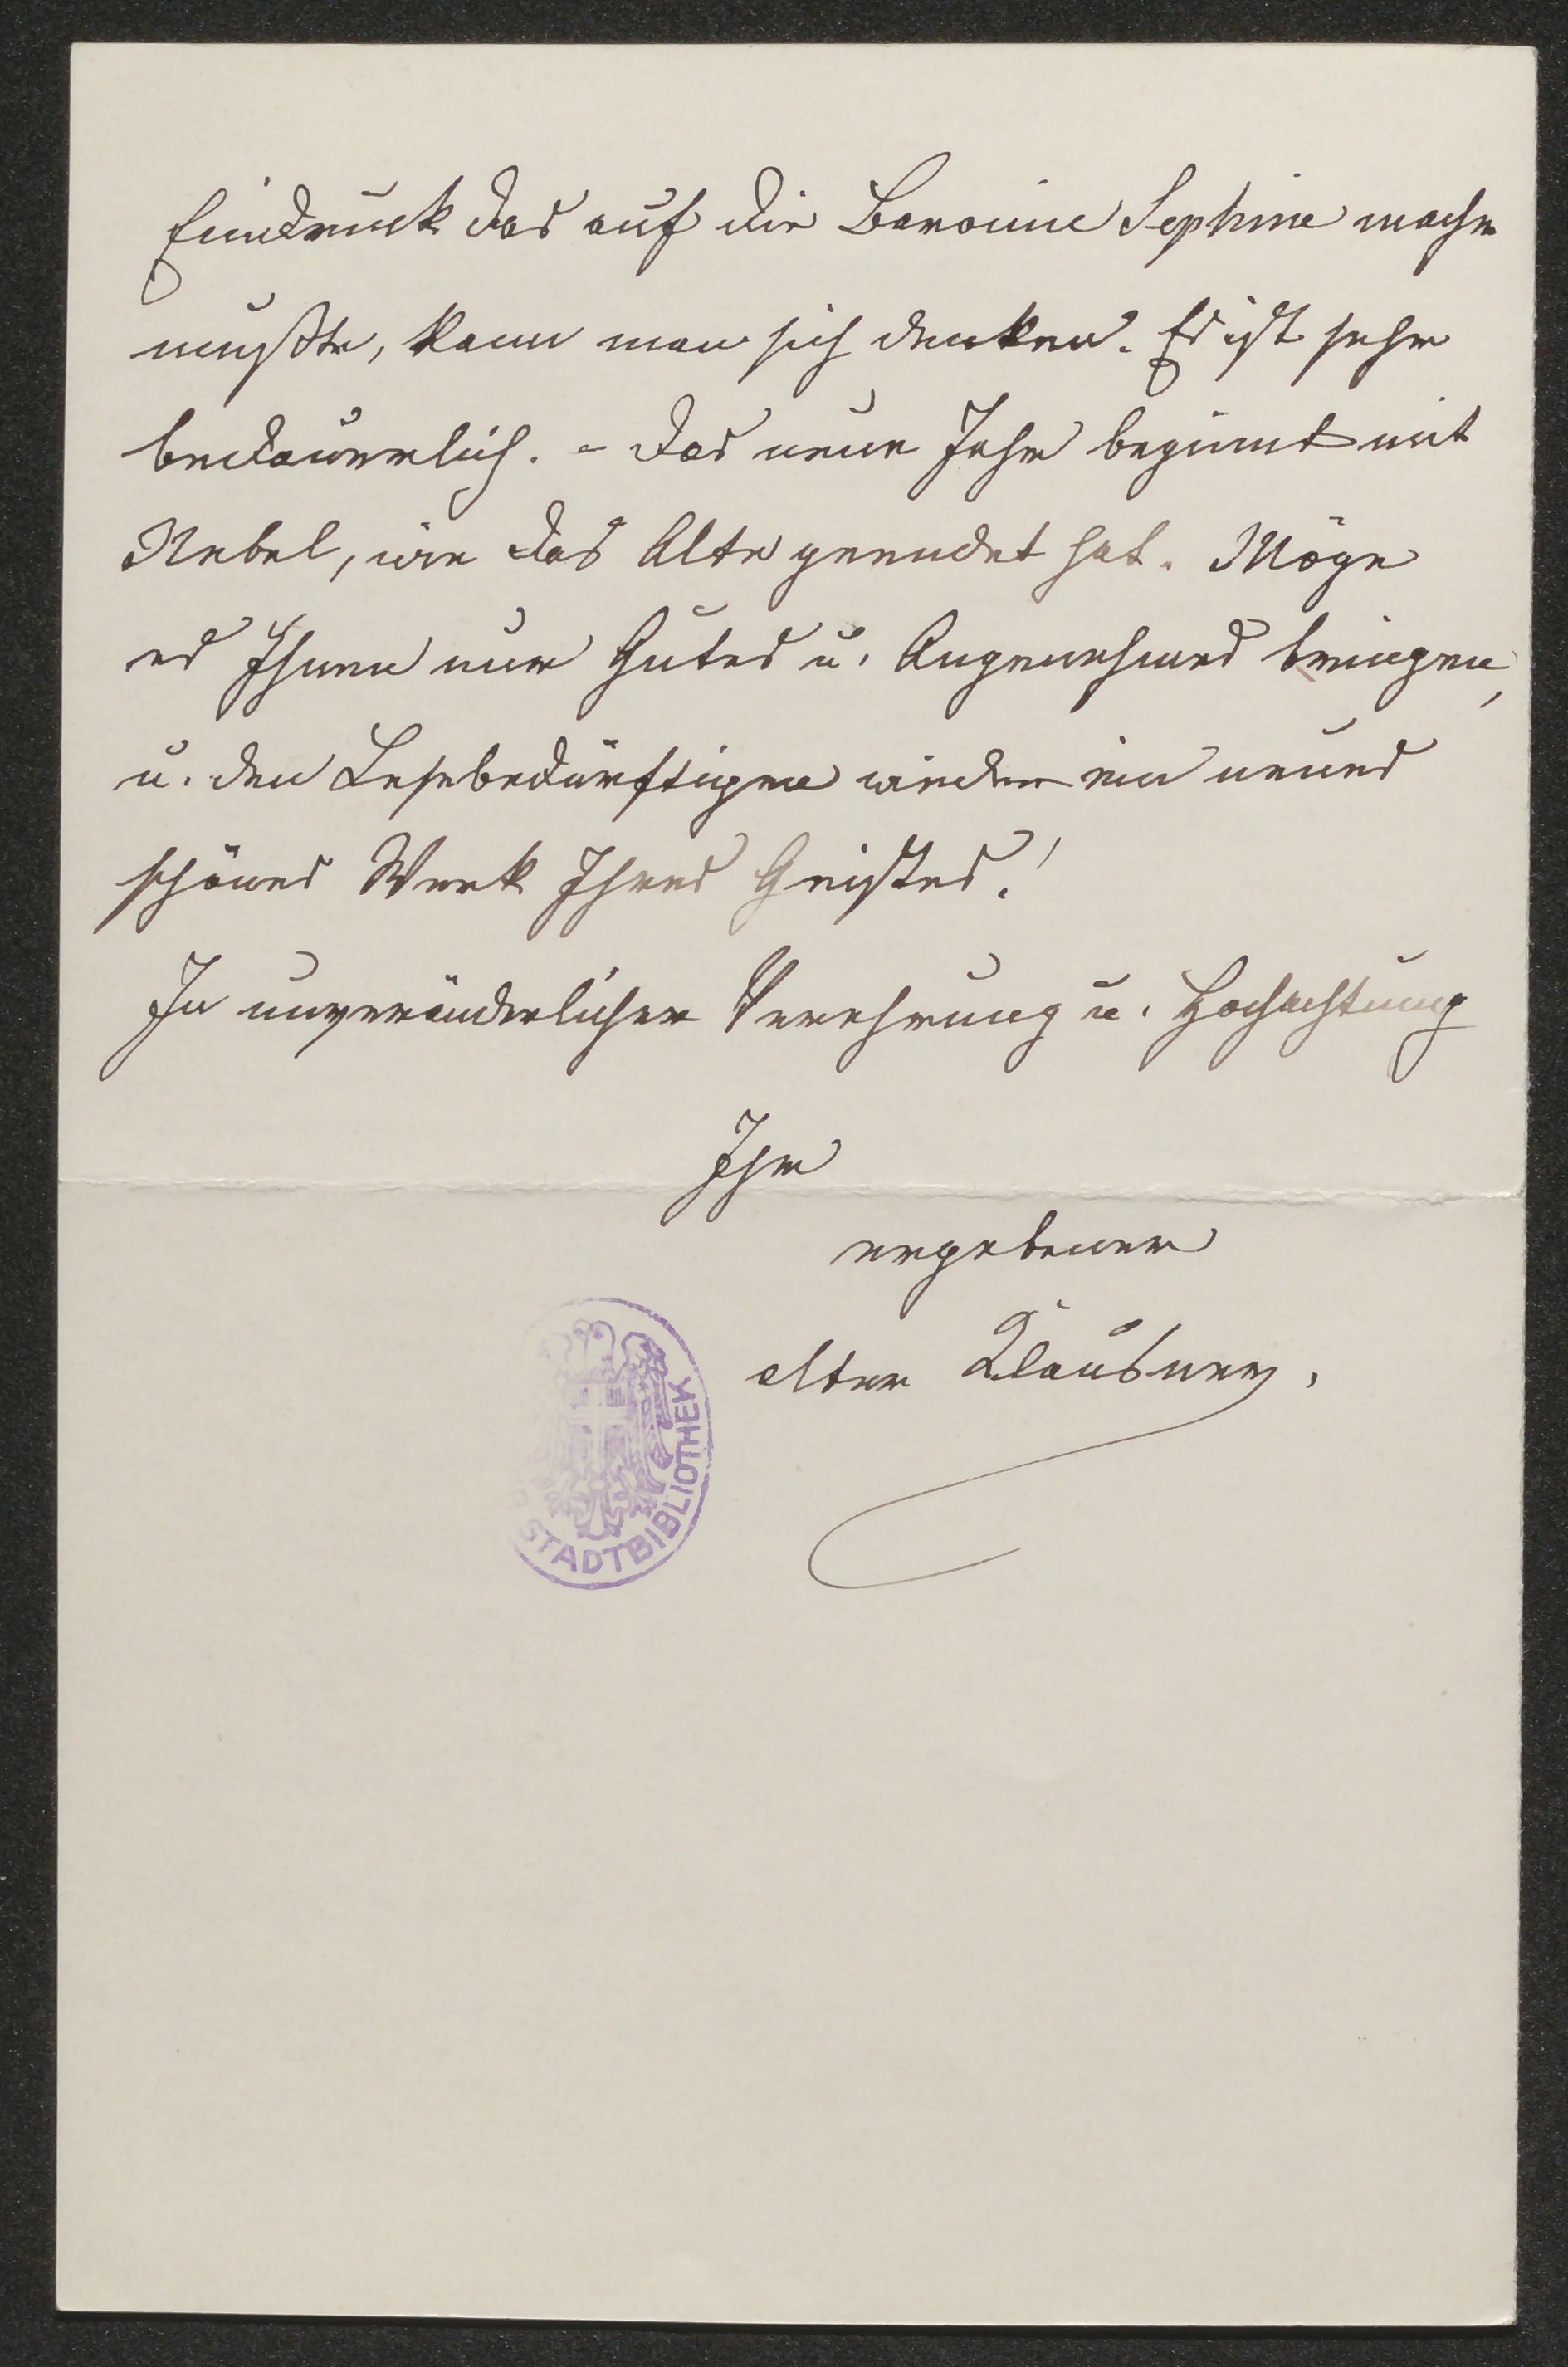 Eindruck das auf die Baronine Sephine machen
mußte, kann man sich denken. Es ist sehr
bedauerlich. – Das neue Jahr beginnt mit
Nebel, wie das Alte geendet hat. Möge
es Ihnen nur Gutes u. Angenehmes bringen,
u. den Lesebedürftigen wieder ein neues
schönes Werk Ihres Geistes!
In unveränderlicher Verehrung u. Hochachtung
Ihr
ergebener
alter Klausner.
STADTBIBLIOTHEK